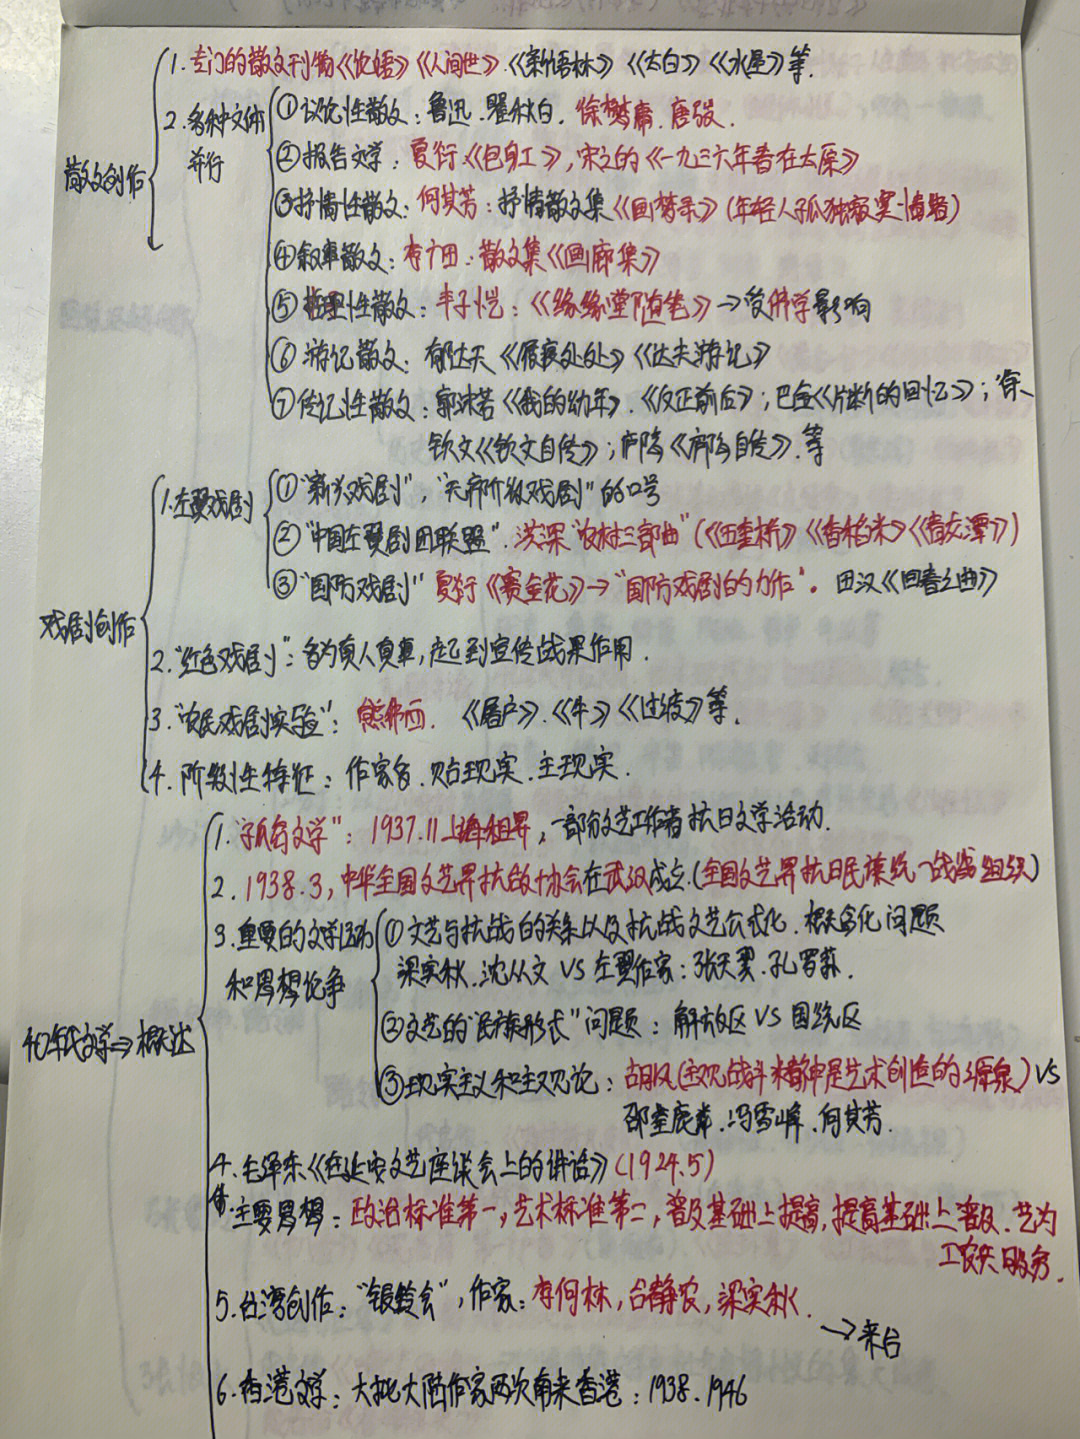 1. 专门的散文刊物《论语》《人间世》.《新语林》《太白》《水星》等.
散文创作
2. 各种文体并行
① 议论性散文：鲁迅. 瞿秋白. 徐懋庸. 唐弢.
② 报告文学：夏衍《包身工》, 宋之的《一九三六年春在太原》
③ 抒情性散文：何其芳：抒情散文集《画梦录》(年轻人孤独寂寞情绪)
④ 叙事散文：李广田：散文集《画廊集》
⑤ 哲理性散文：丰子恺：《缘缘堂随笔》→受佛学影响
⑥ 游记散文：郁达夫《屐痕处处》《达夫游记》
⑦ 传记性散文：郭沫若《我的幼年》.《反正前后》; 巴金《片断的回忆》;
钦文《钦文自传》; 庐隐《庐隐自传》. 等
戏剧创作
1. 左翼戏剧
① "新兴戏剧", "无产阶级戏剧"的口号
② "中国左翼剧团联盟". 洪深"农村三部曲"(《五奎桥》《香稻米》《青龙潭》)
③ "国防戏剧" 夏衍《赛金花》→"国防戏剧的力作". 田汉《回春之曲》
2. "红色戏剧"：多为真人真事, 起到宣传战果作用.
3. "农民戏剧实验"：熊佛西. 《屠户》.《牛》《过渡》等.
4. 阶段性特征：作家多. 贴现实. 主现实.
40年代文学⇒概述
1. "孤岛文学"：1937.11上海租界, 一部分文艺工作者抗日文学活动.
2. 1938.3, 中华全国文艺界抗敌协会在武汉成立.(全国文艺界抗日民族统一战线组织)
3. 重要的文学活动
和思想论争
① 文艺与抗战的关系以及抗战文艺公式化. 概念化问题
梁实秋. 沈从文 VS 左翼作家：张天翼. 孔罗荪.
② 文艺的"民族形式"问题：解放区 VS 国统区
③ 现实主义和主观论：胡风(主观战斗精神是艺术创造的源泉) VS
邵荃麟. 冯雪峰. 何其芳.
4. 毛泽东《在延安文艺座谈会上的讲话》(1924.5)
主要思想：政治标准第一, 艺术标准第二, 普及基础上提高, 提高基础上普及. 艺为
工农兵服务.
5. 台湾创作："银铃会", 作家：李何林, 台静农, 梁实秋.
→来台
6. 香港文学：大批大陆作家两次南来香港：1938. 1946